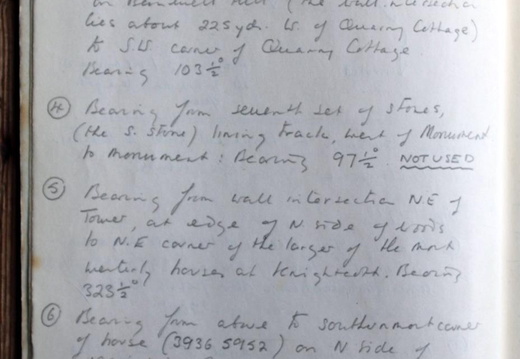 on Benwell Hill (the wall intersection
lies about 225 yds. W. of Quarry Cottage)
to SW corner of Quarry Cottage.
Bearing 103½°
④ Bearing from seventh set of stones,
(the S. stone) lining track, west of Monument
to monument: Bearing 97½°. NOT USED
⑤ Bearing from wall intersection NE of
Tower, at edge of N side of woods
to N.E corner of the larger of the most
westerly houses at Knightcott. Bearing
323½°
⑥ Bearing from above to southernmost corner
of house (3936 5952) on N side of